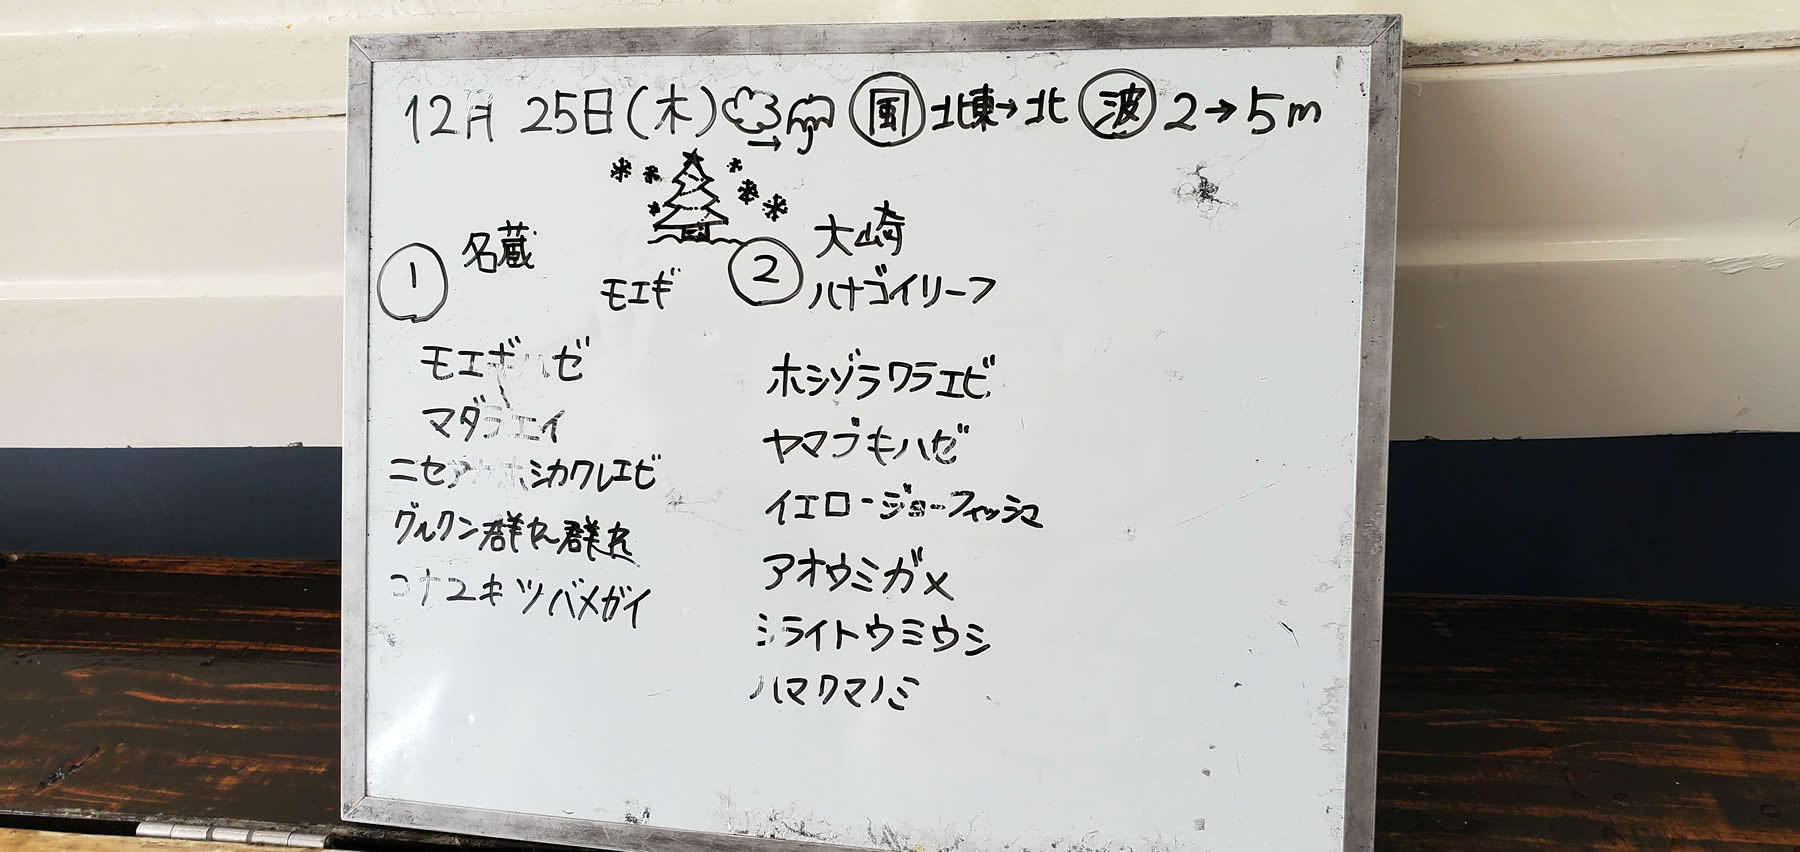 12月 25日(木) 風 北東→北 波 2→5m
① 名蔵
モエギ
② 大崎
ハナゴイリーフ
モエギハゼ
マダラエイ
ニセアカホシカクレエビ
グルクン群れ群れ
コナユキツバメガイ
ホシゾラワラエビ
ヤマブキハゼ
イエロージョーフィッシュ
アオウミガメ
シライトウミウシ
ハマクマノミ